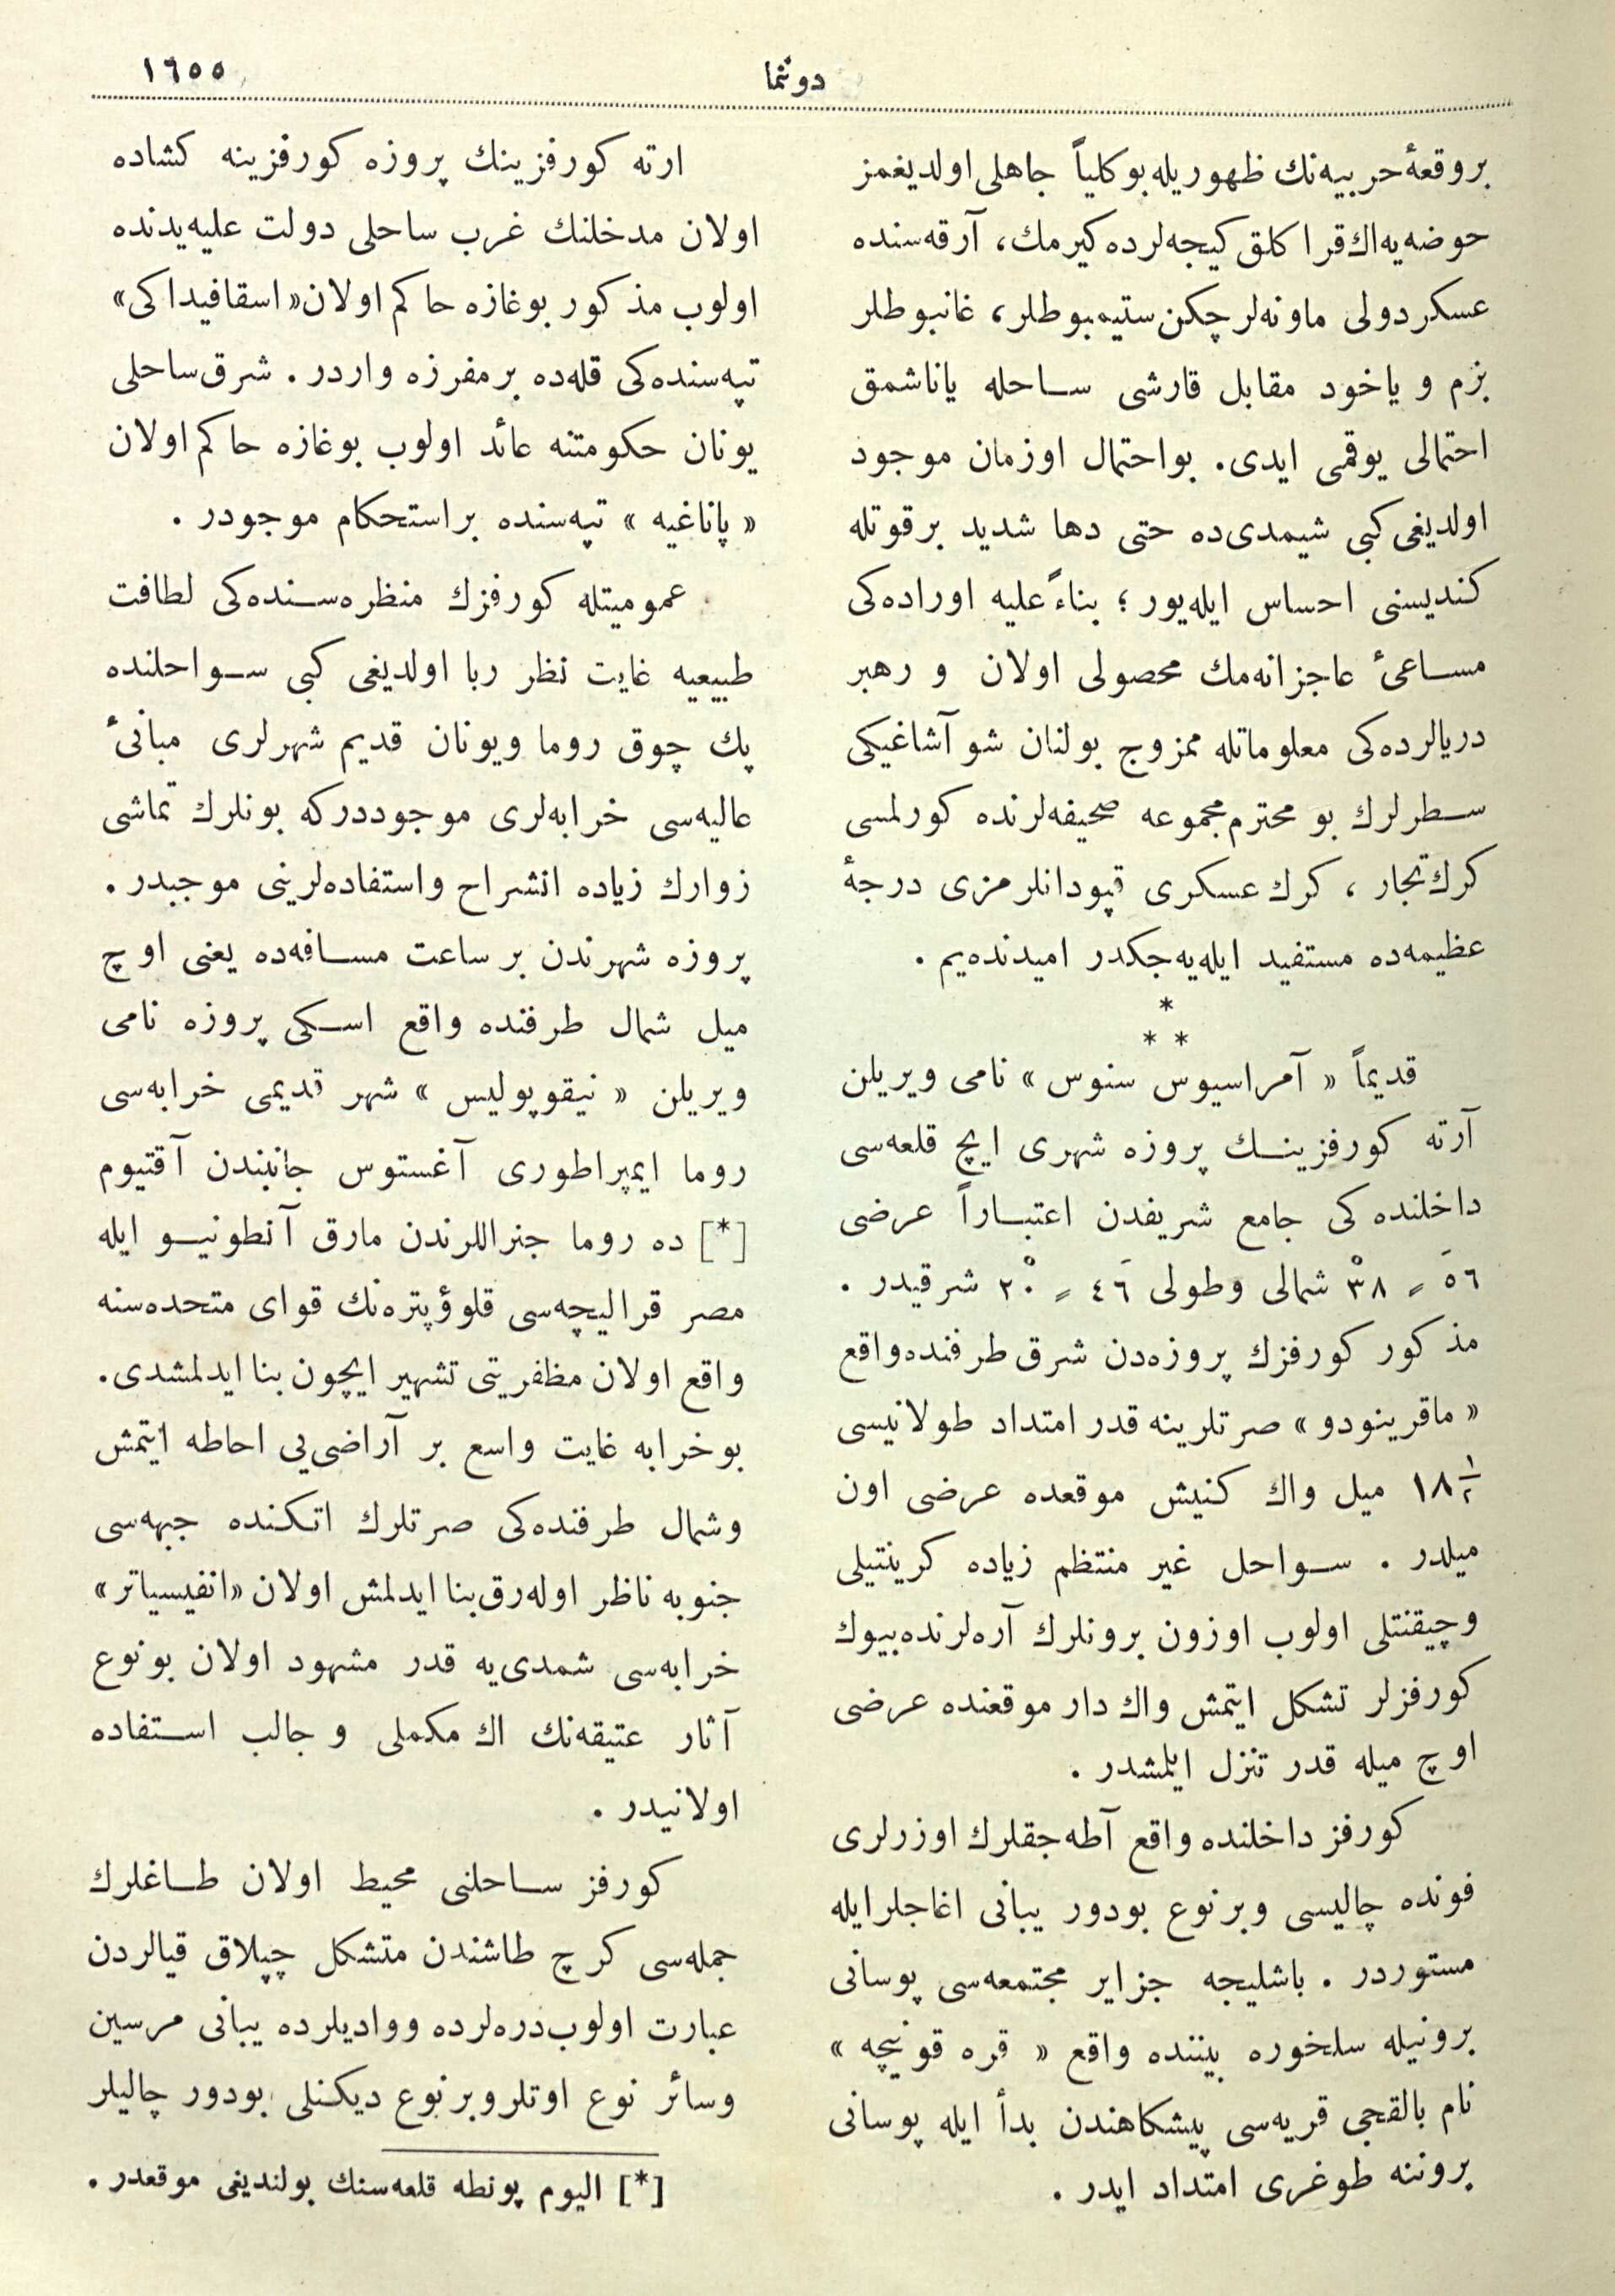 دوننما
١٦٥٥
بر وقعهٔ حربیه‌نك ظهوریله بو كلیاً جاهلی اولدیغمز
حوضه‌یه اك قراكلق كیجه‌لرده كیرمك، آرقه‌سنده
عسكر دولی ماونه‌لر چكن ستیمبوطلر، غانبوطلر
بزم و یاخود مقابل قارشی ساحله یاناشمق
احتمالی یوقمی ایدی. بو احتمال اوزمان موجود
اولدیغی كبی شیمدی‌ده حتی دها شدید بر قوتله
كندیسنی احساس ایله‌یور ؛ بناءً علیه اوراده‌كی
مساعیٔ عاجزانه‌مك محصولی اولان و رهبر
دریالرده‌كی معلوماتله ممزوج بولنان شو آشاغیكی
سطرلرك بو محترم مجموعه صحیفه‌لرنده كورلمسی
كرك تجار ، كرك عسكری قپودانلرمزی درجهٔ
عظیمه‌ده مستفید ایله‌یه‌جكدر امیدنده‌یم .
*
* *
قدیماً « آمراسیوس سنوس » نامی ویریلن
آرته كورفزینك پروزه شهری ایچ قلعه‌سی
داخلنده‌كی جامع شریفدن اعتباراً عرضی
٥٦َ ـ ٣٨ْ شمالی وطولی ٤٦َ ـ ٢٠ْ شرقیدر .
مذكور كورفزك پروزه‌دن شرق طرفنده واقع
« ماقرینودو » صرتلرینه قدر امتداد طولانیسی
١٨ ١/٢ میل واك كنیش موقعده عرضی اون
میلدر . سواحل غیر منتظم زیاده كرینتیلی
وچیقنتلی اولوب اوزون برونلرك آره‌لرنده بیوك
كورفزلر تشكل ایتمش واك دار موقعنده عرضی
اوچ میله قدر تنزل ایلمشدر .
كورفز داخلنده واقع آطه‌جقلرك اوزرلری
فونده چالیسی وبر نوع بودور یبانی اغاجلر ایله
مستوردر . باشلیجه جزایر مجتمعه‌سی پوسانی
برونیله سلخوره بیننده واقع « قره قونیچه »
نام بالقجی قریه‌سی پیشكاهندن بدأ ایله پوسانی
بروننه طوغری امتداد ایدر .
ارته كورفزینك پروزه كورفزینه كشاده
اولان مدخلنك غرب ساحلی دولت علیه‌یدنده
اولوب مذكور بوغازه حاكم اولان « اسقافیداكی »
تپه‌سنده‌كی قله‌ده بر مفرزه واردر . شرق ساحلی
یونان حكومتنه عائد اولوب بوغازه حاكم اولان
« پاناغیه » تپه‌سنده بر استحكام موجودر .
عمومیتله كورفزك منظره‌سنده‌كی لطافت
طبیعیه غایت نظر ربا اولدیغی كبی سواحلنده
پك چوق روما ویونان قدیم شهرلری مبانیٔ
عالیه‌سی خرابه‌لری موجوددركه بونلرك تماشی
زوارك زیاده انشراح واستفاده‌لرینی موجبدر .
پروزه شهرندن بر ساعت مسافه‌ده یعنی اوچ
میل شمال طرفنده واقع اسكی پروزه نامی
ویریلن « نیقوپولیس » شهر قدیمی خرابه‌سی
روما ایمپراطوری آغستوس جانبندن آقتیوم
[*] ده روما جنراللرندن مارق آنطونیو ایله
مصر قرالیچه‌سی قلوؤپتره‌نك قوای متحده‌سنه
واقع اولان مظفریتی تشهیر ایچون بنا ایدلمشدی.
بو خرابه غایت واسع بر آراضی‌یی احاطه ایتمش
وشمال طرفنده‌كی صرتلرك اتكنده جبهه‌سی
جنوبه ناظر اوله‌رق بنا ایدلمش اولان « انفیسیاتر »
خرابه‌سی شمدی‌یه قدر مشهود اولان بو نوع
آثار عتیقه‌نك اك مكملی و جالب استفاده
اولانیدر .
كورفز ساحلنی محیط اولان طاغلرك
جمله‌سی كرچ طاشندن متشكل چپلاق قیالردن
عبارت اولوب دره‌لرده ووادیلرده یبانی مرسین
وسائر نوع اوتلر وبر نوع دیكنلی بودور چالیلر
[*] الیوم پونطه قلعه‌سنك بولندیغی موقعدر .